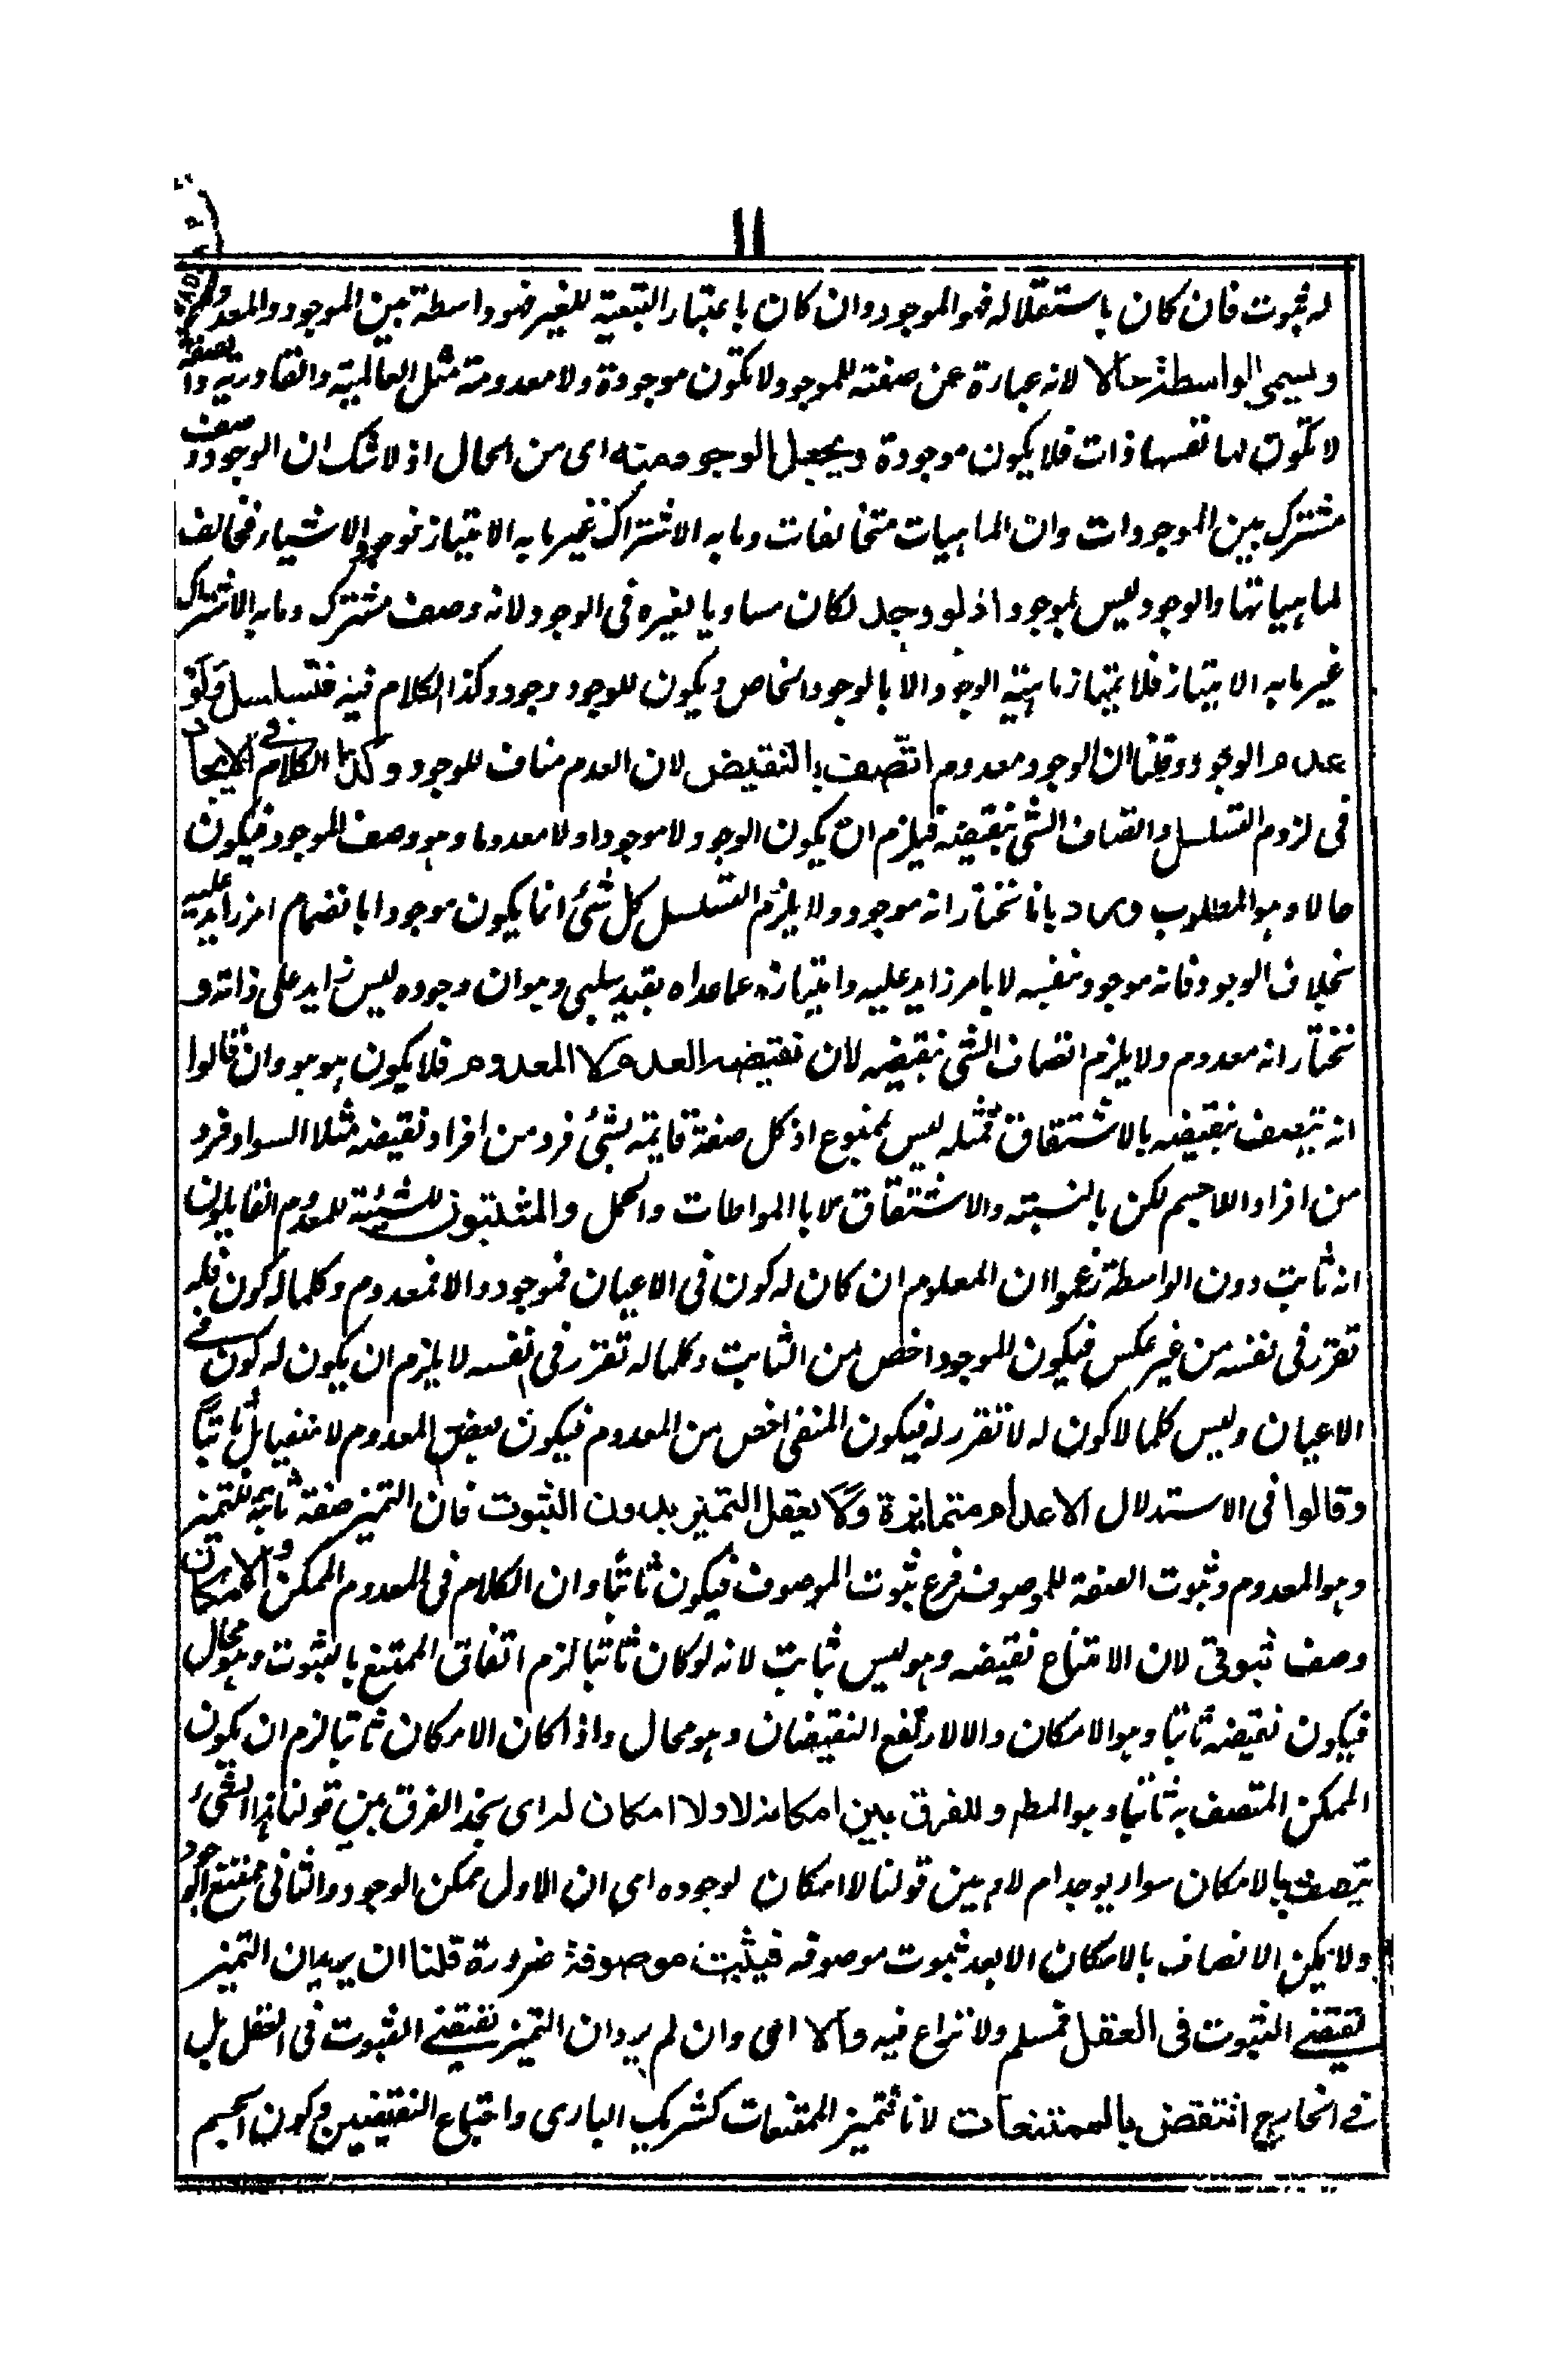 ١١
له ثبوت فان كان باستقلاله فهو الموجود وان كان باعتبار التبعية للغير فهو واسطة بين الموجود والمعدوم
ويسمى الواسطة حالا لانه عبارة عن صفته للموجود لا تكون موجودة ولا معدومة مثل العالمية والقادرية والصفة
لا تكون لها نفسها ذات فلا يكون موجودة ويجعل الوجود منه اى من الحال اذ لا شك ان الوجود وصف
مشترك بين الموجودات وان الماهيات متخالفات وما به الاشتراك غير ما به الامتياز فوجود الاشياء مخالف
لماهياتها والوجود ليس بموجود اذ لو وجد لكان مساويا لغيره فى الوجود لانه وصف مشترك وما به الاشتراك
غير ما به الامتياز فلا يمتاز ماهية الوجود الا بالوجود الخاص ويكون للوجود وجود وكذا الكلام فيه فتسلسل ولو
عدم الوجود وقلنا ان الوجود معدوم اتصف بالنقيض لان العدم مناف للوجود وكذا الكلام فى الايجاد
فى لزوم التسلسل واتصاف الشئ بنقيضه فيلزم ان يكون الوجود لا موجودا ولا معدوما وهو وصف الموجود فيكون
حالا وهو المطلوب ورد بانا نختار انه موجود ولا يلزم التسلسل كل شئ انما يكون موجودا بانضمام امر زايد عليه
بخلاف الوجود فانه موجود بنفسه لا بامر زايد عليه وامتيازه عما عداه بقيد سلبى وهو ان وجوده ليس زايد على ذاته و
نختار انه معدوم ولا يلزم اتصاف الشئ بنقيضه لان نقيضه العدم لا المعدوم فلا يكون هو هو وان قالوا
انه يتصف بنقيضه بالاشتقاق فمثله ليس بممنوع اذ كل صفة قايمة بشئ فرد من افراد نقيضه مثلا السواد فرد
من افراد اللاجسم لكن بالنسبته والاشتقاق لا بالمواطات والحمل والمثبتون للشيئة للمعدوم القايلون
انه ثابت دون الواسطة زعموا ان المعلوم ان كان له كون فى الاعيان فموجود والا فمعدوم وكلما له كون فله
تقرر فى نفسه من غير عكس فيكون للموجود اخص من الثابت وكلما له تقرر فى نفسه لا يلزم ان يكون له كون فى
الاعيان وليس كلما لا كون له لا تقرر له فيكون المنفى اخص من المعدوم فيكون بعض المعدوم لا منفيا بل ثابتا
وقالوا فى الاستدلال الاعدام متمايزة ولا يعقل التميز بدون الثبوت فان التميز صفة ثابتة للمتميز
وهو المعدوم وثبوت الصفة للموصوف فرع ثبوت الموصوف فيكون ثابتا وان الكلام فى المعدوم الممكن والامكان
وصف ثبوتى لان الامتناع نقيضه وهو ليس ثبابت لانه لو كان ثابتا لزم اتفاق الممتنع بالثبوت وهو محال
فيكون نقيضه ثابتا وهو الامكان والا لارتفع النقيضان وهو محال واذا كان الامكان ثابتا لزم ان يكون
الممكن المتصف به ثابتا وهو المطم وللفرق بين امكانه لا ولا امكان له اى نجد الفرق بين قولنا هذا الشئ
يتصف بالامكان سواء يوجد ام لا وبين قولنا لا امكان لوجوده اى ان الاول ممكن الوجود والثانى ممتنع الوجود
ولا يمكن الاتصاف بالامكان الا بعد ثبوت موصوفه فيثبت موصوفة ضرورة قلنا ان يريد ان التميز
تقتضى الثبوت فى العقل فمسلم ولا نزاع فيه والا اى وان لم يرد ان التميز تقتضى الثبوت فى العقل بل
فى الخارج انتقض بالممتنعات لانا نتميز الممتنعات كشريك البارى واجتماع النقيضين وكون الجسم